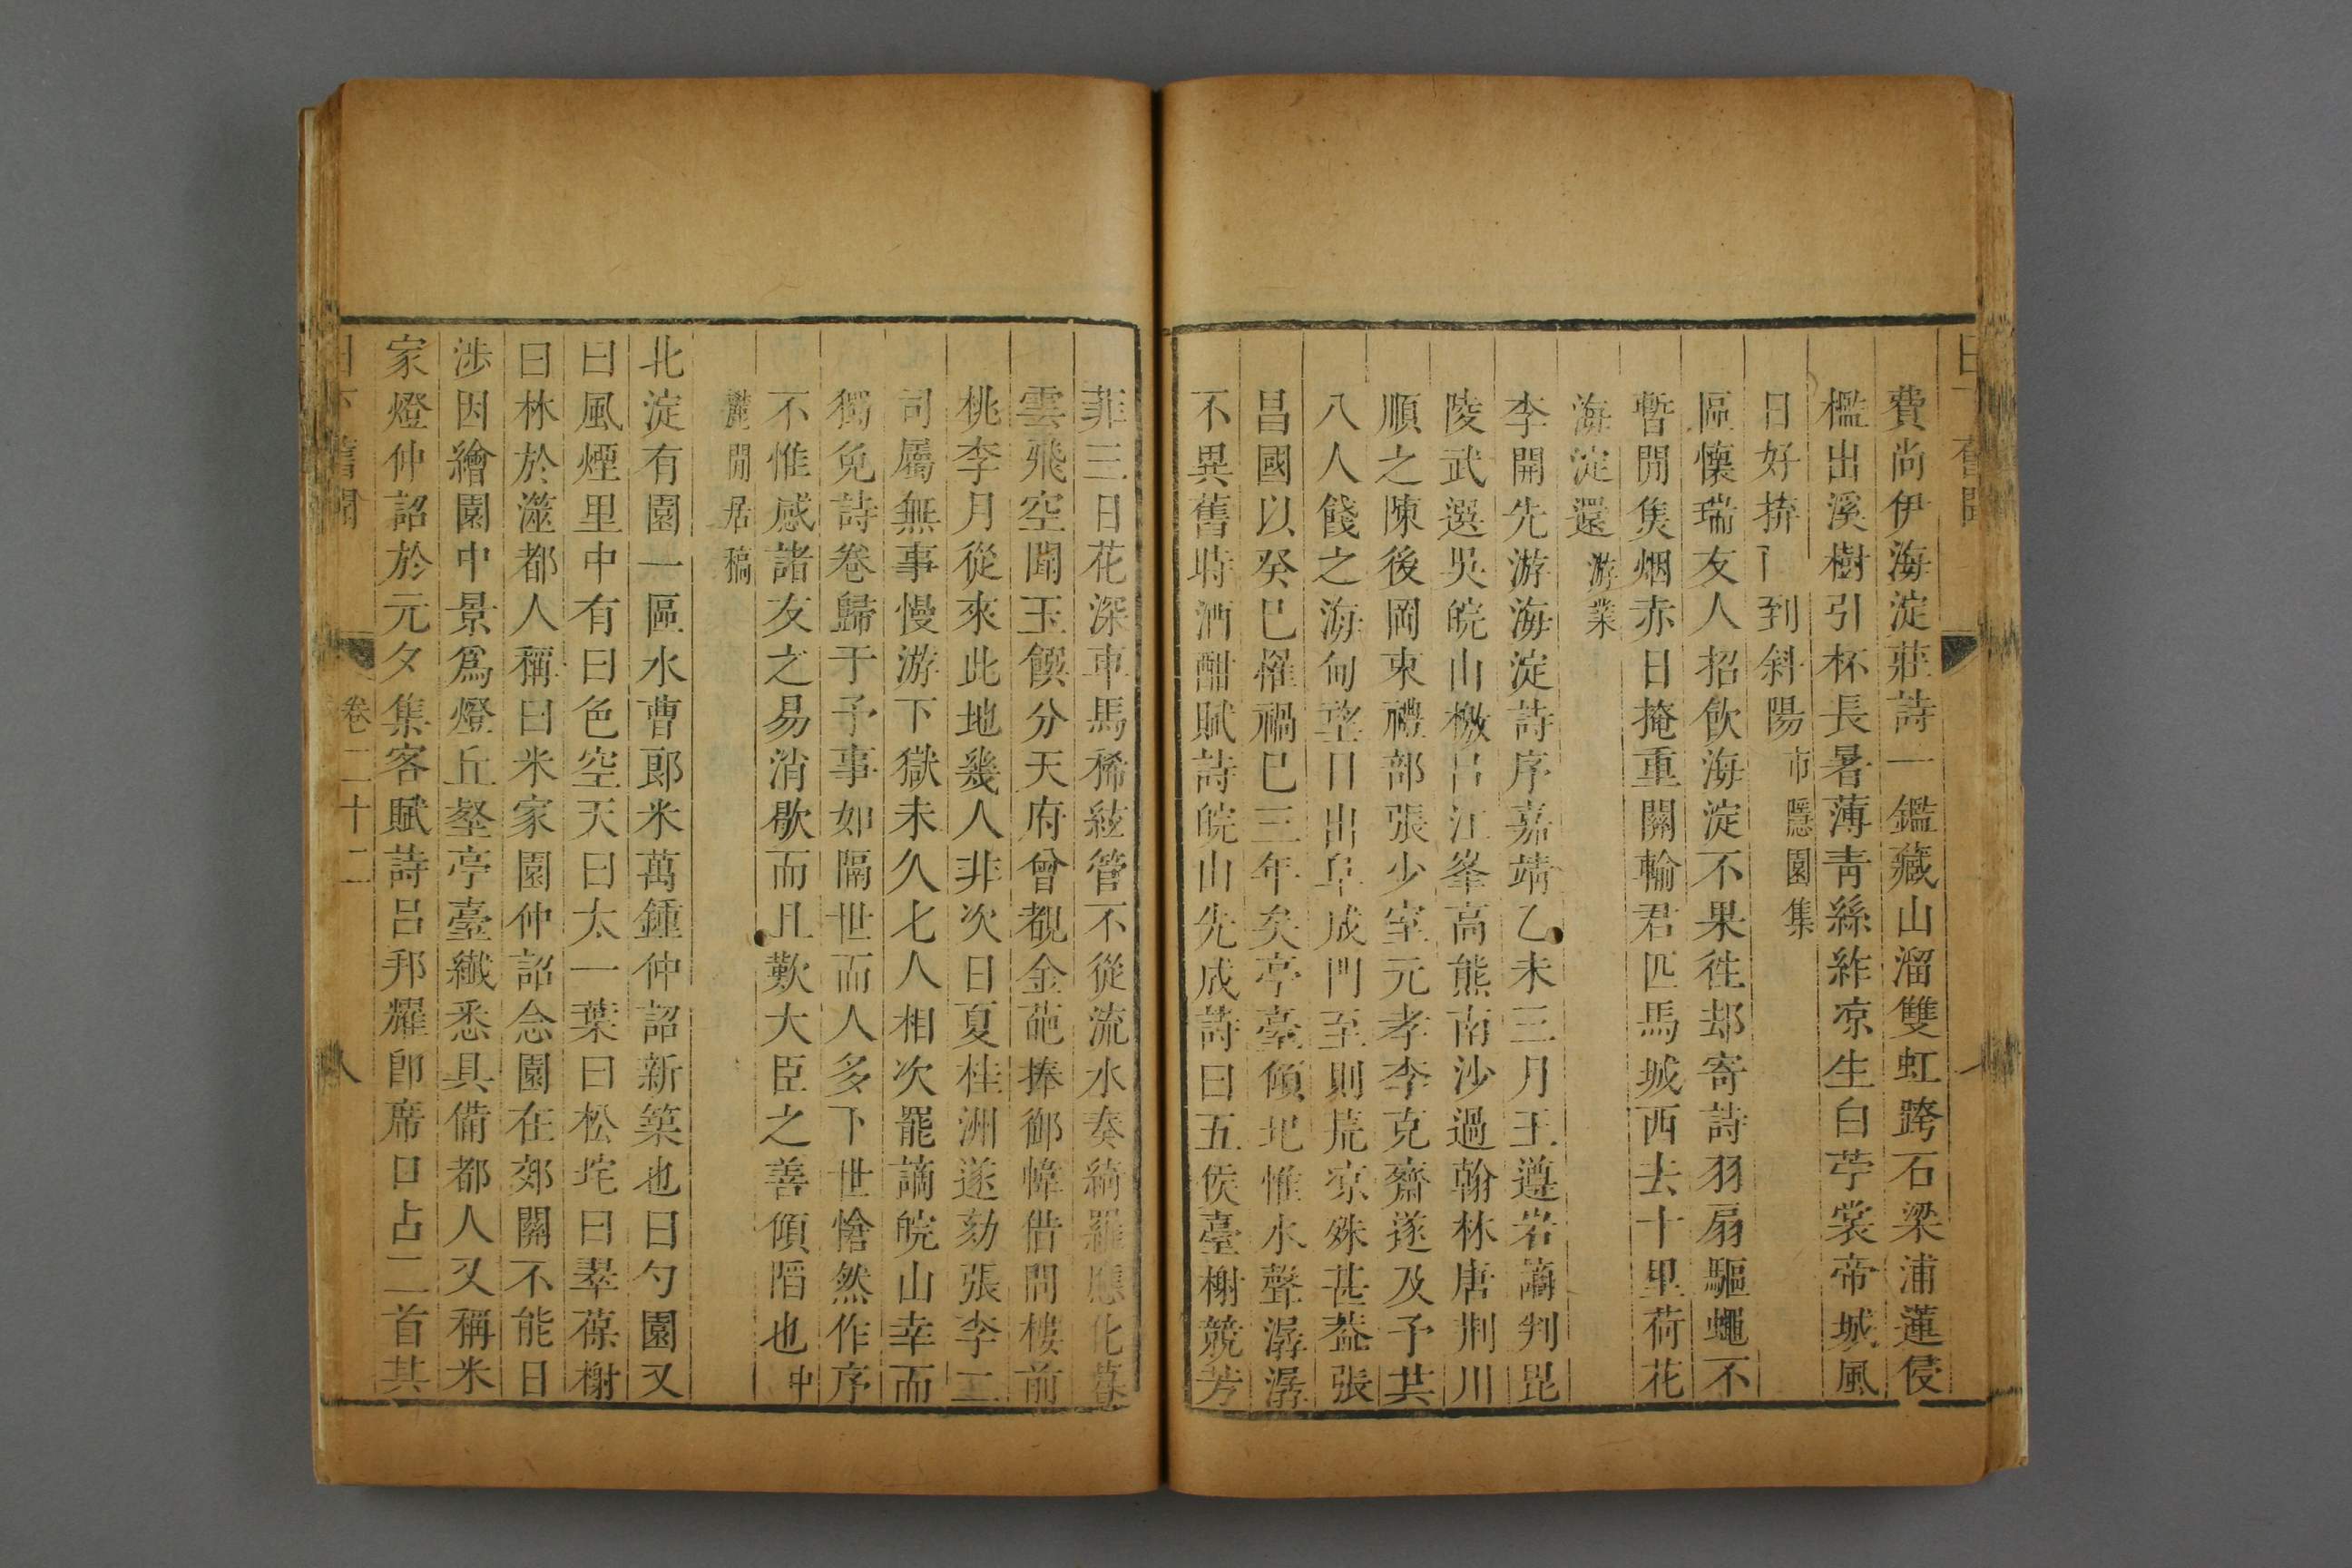 費尚伊海淀莊詩一鑑藏山溜雙虹跨石梁浦蓮侵
檻出溪樹引杯長暑薄青絲䋏凉生白苧裳帝城風
日好捹到斜陽市隱園集
區懷瑞友人招飮海淀不果徃却寄詩羽扇驅蠅不
暫閒隻烟赤日掩重關輸君匹馬城西去十里荷花
海淀還游業
李開先游海淀詩序嘉靖乙未三月王遵岩謫判毘
陵武選吳皖山檄呂江峯高熊南沙過翰林唐荆川
順之陳後岡東禮部張少室元孝李克齋遂及予共
八人餞之海甸望日出阜成門至則荒凉殊甚葢張
昌國以癸巳罹禍巳三年矣亭臺傾圮惟水聲潺潺
不異舊時酒酣賦詩皖山先成詩曰五侯臺榭競芳
菲三日花深車馬稀絃管不從流水奏綺羅應化暮
雲飛空聞玉饌分天府曾覩金葩捧御幃借問樓前
桃李月從來此地幾人非次日夏桂洲遂劾張李二
司屬無事慢游下獄未久七人相次罷謫皖山幸而
獨免詩卷歸于予事如隔世而人多下世愴然作序
不惟感諸友之易消歇而且歎大臣之善傾陷也中
麓閒居稿
北淀有園一區水曹郎米萬鍾仲詔新築也曰勺園又
曰風煙里中有曰色空天曰太一葉曰松坨曰翠葆榭
曰林於澨都人稱曰米家園仲詔念園在郊關不能日
涉因繪園中景爲燈丘壑亭臺纎悉具備都人又稱米
家燈仲詔於元夕集客賦詩呂邦耀卽席口占二首其
日下舊聞 卷二十二 八